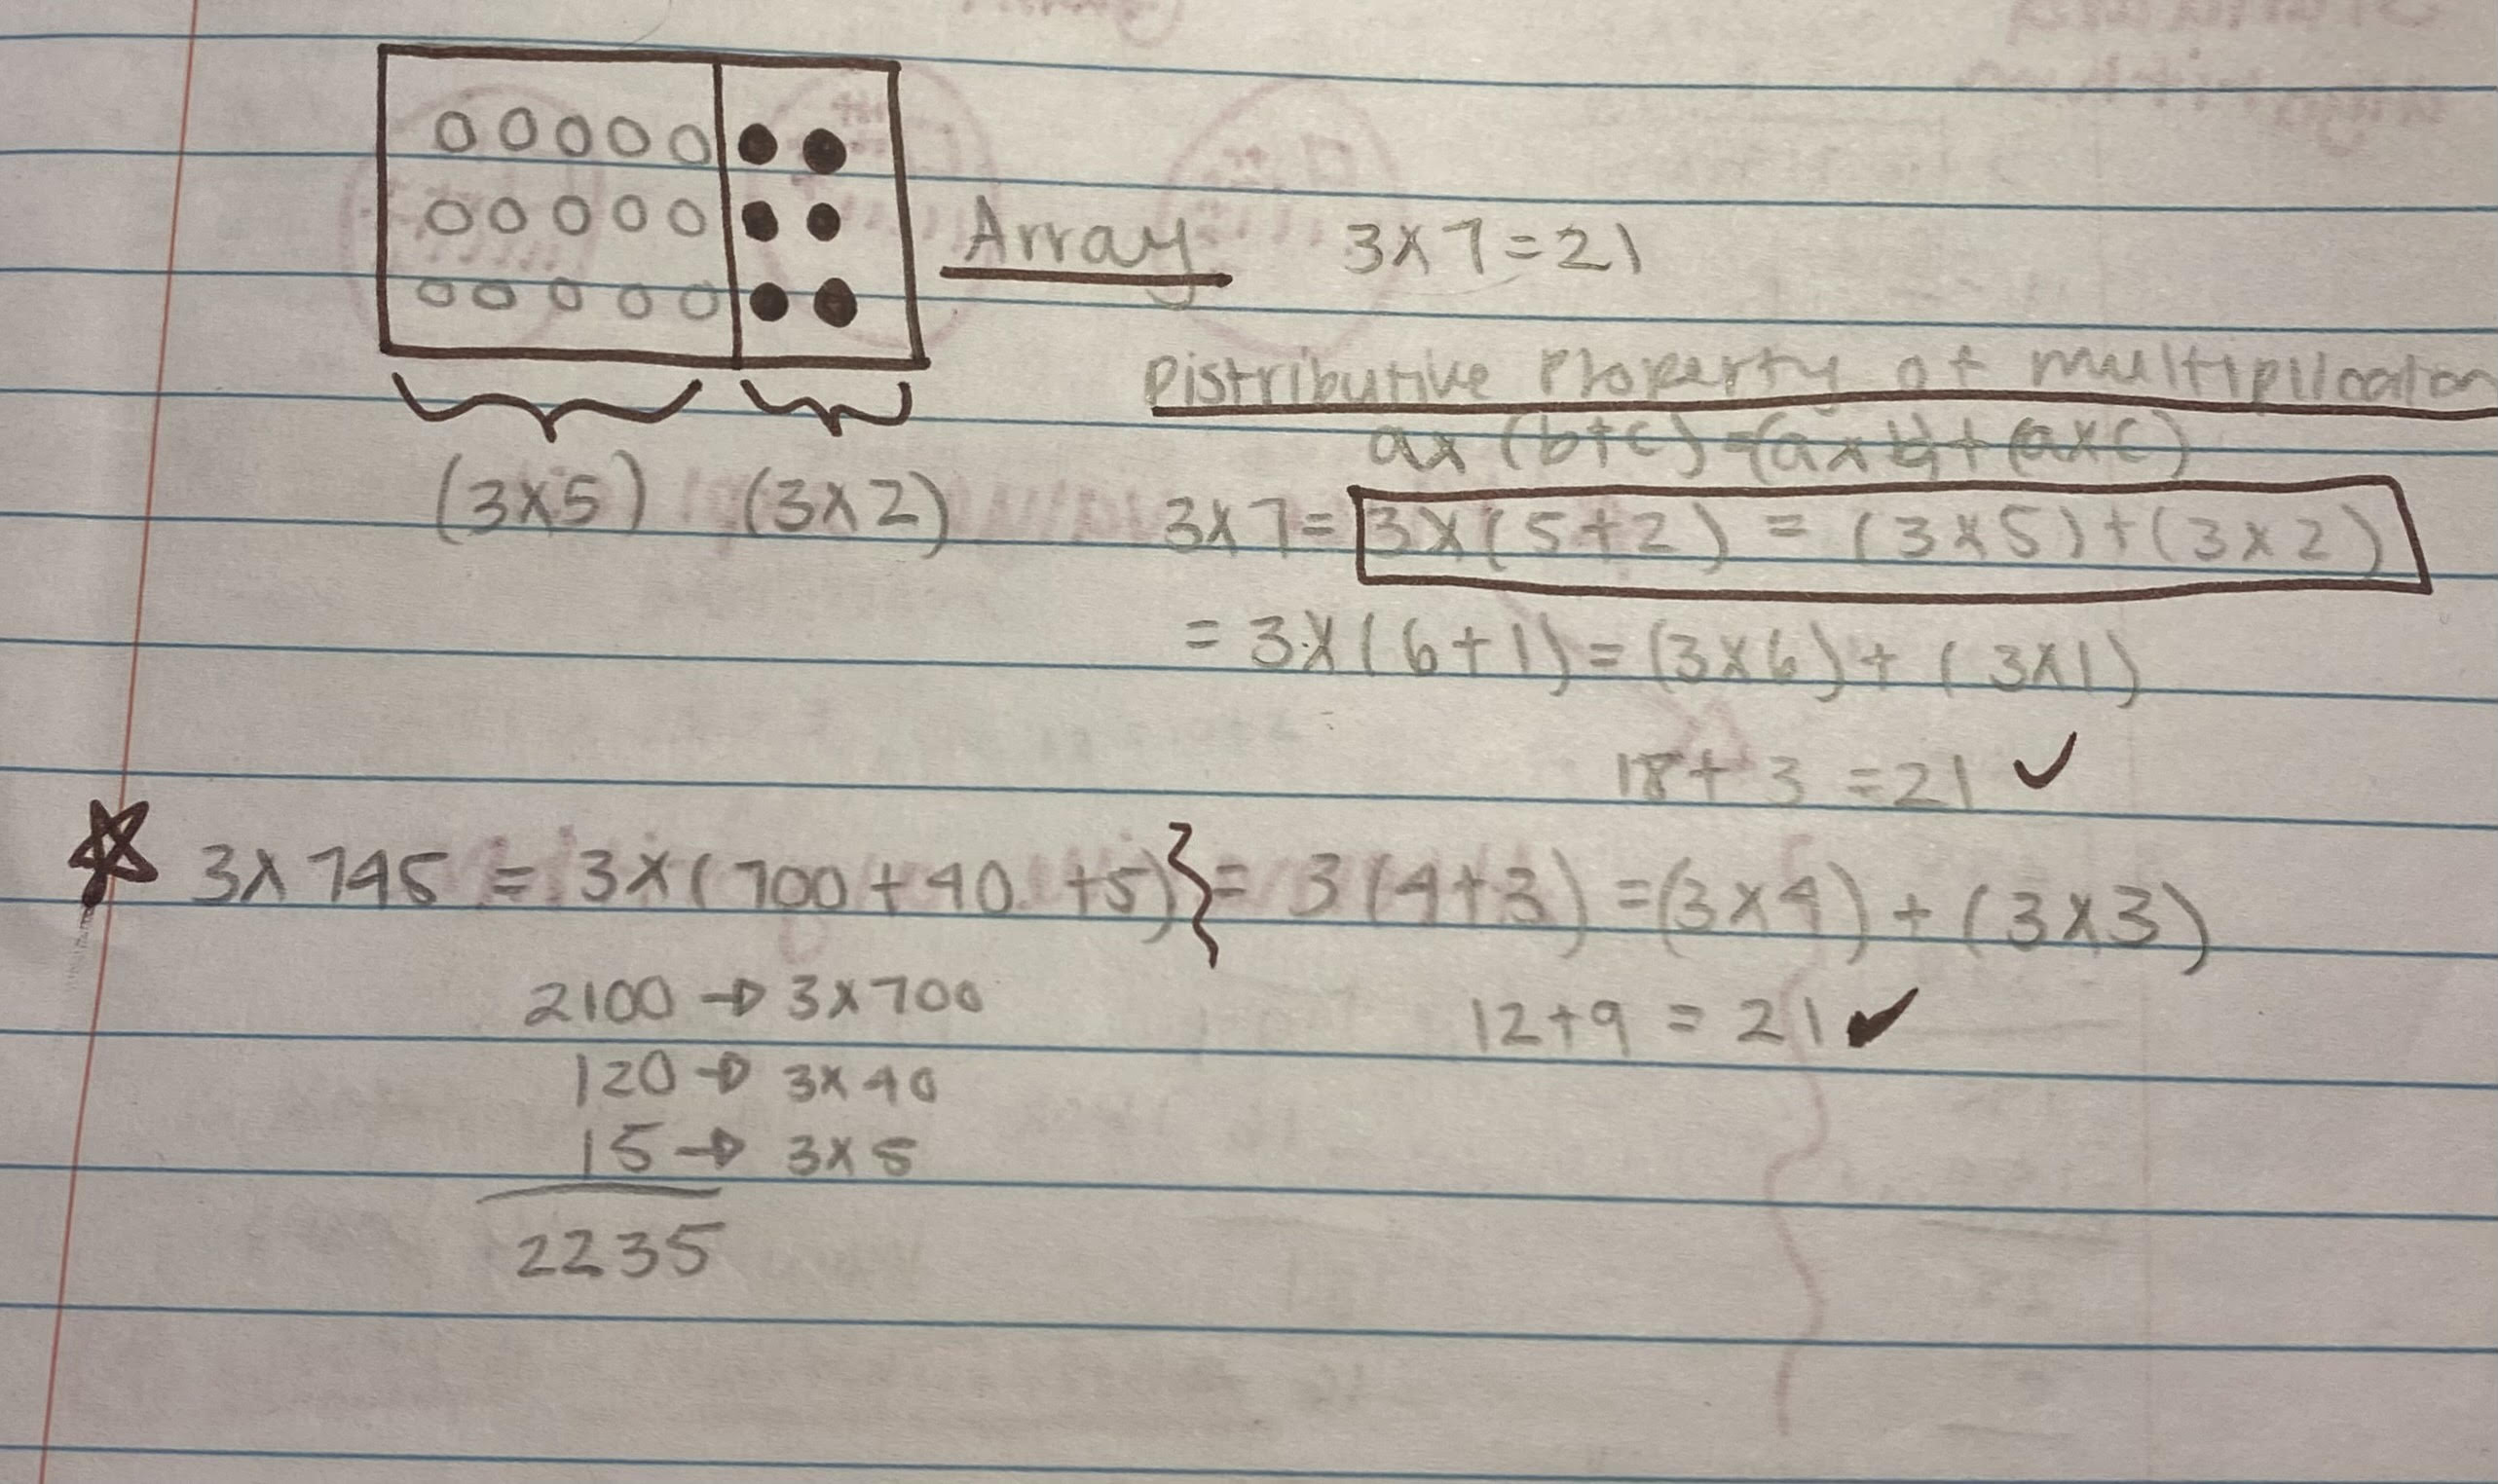 Array 3×7=21
Distributive Property of multiplication
a×(b+c)=(a×b)+(a×c)
(3×5) (3×2)
3×7= 3×(5+2) = (3×5)+(3×2)
= 3×(6+1)=(3×6)+(3×1)
18+3=21 ✓
☆ 3×745 = 3×(700+40+5)} = 3(4+3)=(3×4)+(3×3)
2100→3×700
12+9=21 ✓
120→3×40
15→3×5
2235